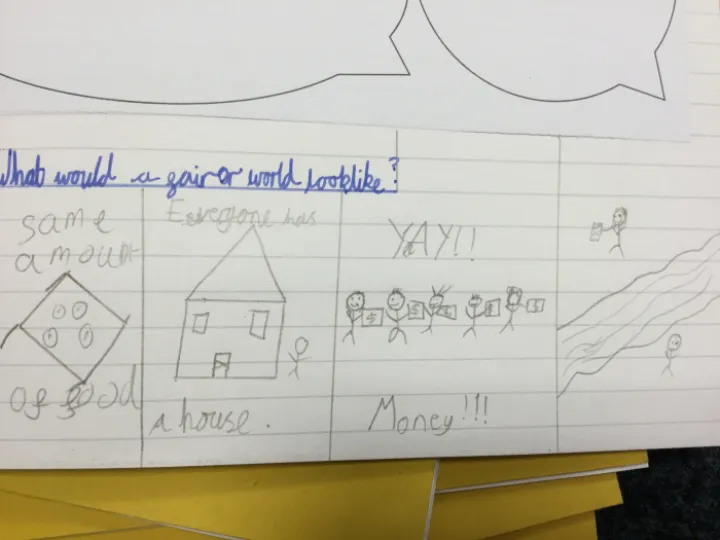 What would a fairer world look like?
same
amount
of food
Everyone has
a house.
YAY!!
$ $ $ $ $
Money!!!